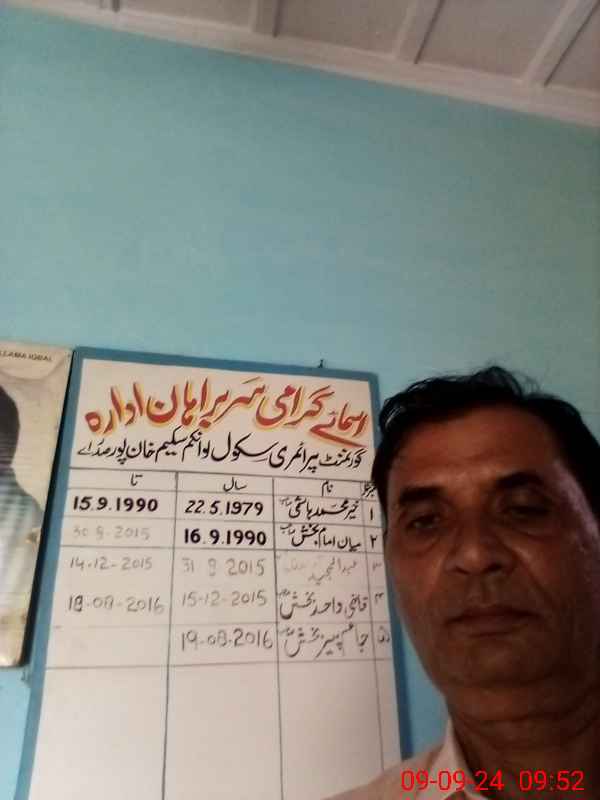 LLAMA IQBAL
اسمائے گرامی سربراہان ادارہ
گورنمنٹ پرائمری سکول لوانکم سکیم خان پور صدر اے
نمبر شمار نام سال تا
۱ خیر محمد ہاشمی صاحب 22.5.1979 15.9.1990
۲ میاں امام بخش صاحب 16.9.1990 30-8-2015
۳ عبدالمجید 31 8 2015 14-12-2015
۴ قاضی واحد بخش صاحب 15-12-2015 18-08-2016
۵ جام پیر بخش صاحب 19-08-2016
09-09-24 09:52